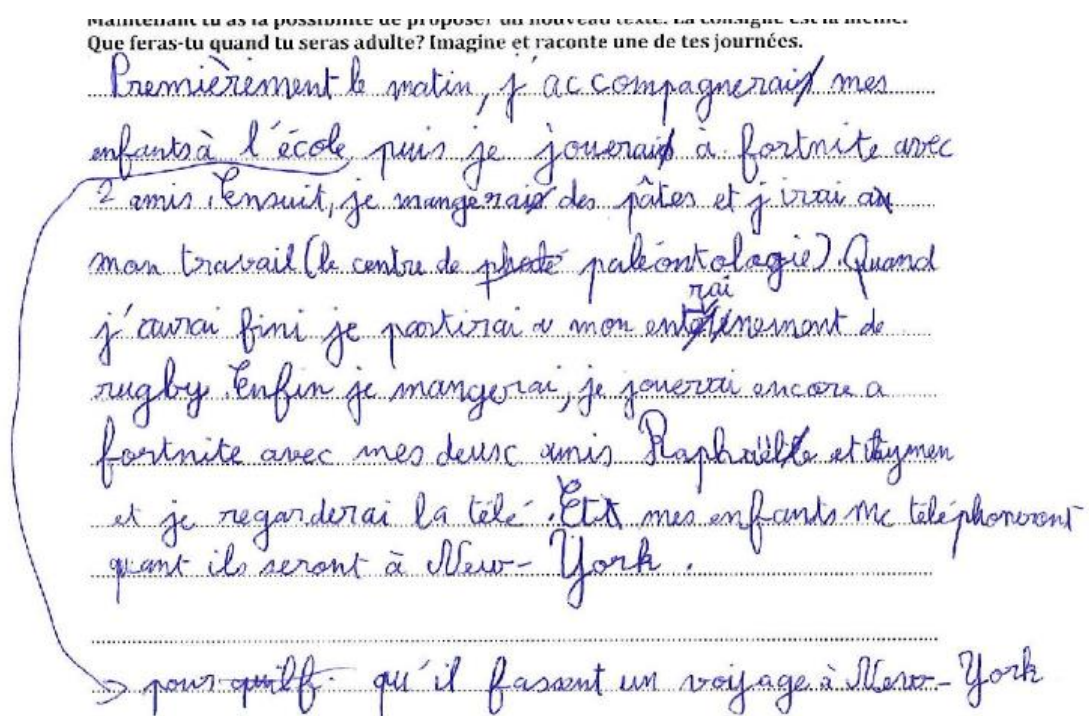 Maintenant tu as la possibilité de proposer un nouveau texte. La consigne est la même.
Que feras-tu quand tu seras adulte? Imagine et raconte une de tes journées.
Premièrement le matin, j'accompagnerai mes
enfants à l'école puis je jouerai à fortnite avec
2 amis. Ensuit, je mangerai des pâtes et j'irai a
mon travail (le centre de paléontologie). Quand
j'aurai fini je partirai a mon entrainement de
rugby. Enfin je mangerai, je jouerai encore a
fortnite avec mes deux amis Raphaël et Aymen
et je regarderai la télé. Et mes enfants me téléphoneront
quant ils seront à New-York.
pour qu'il fassent un voyage à New-York